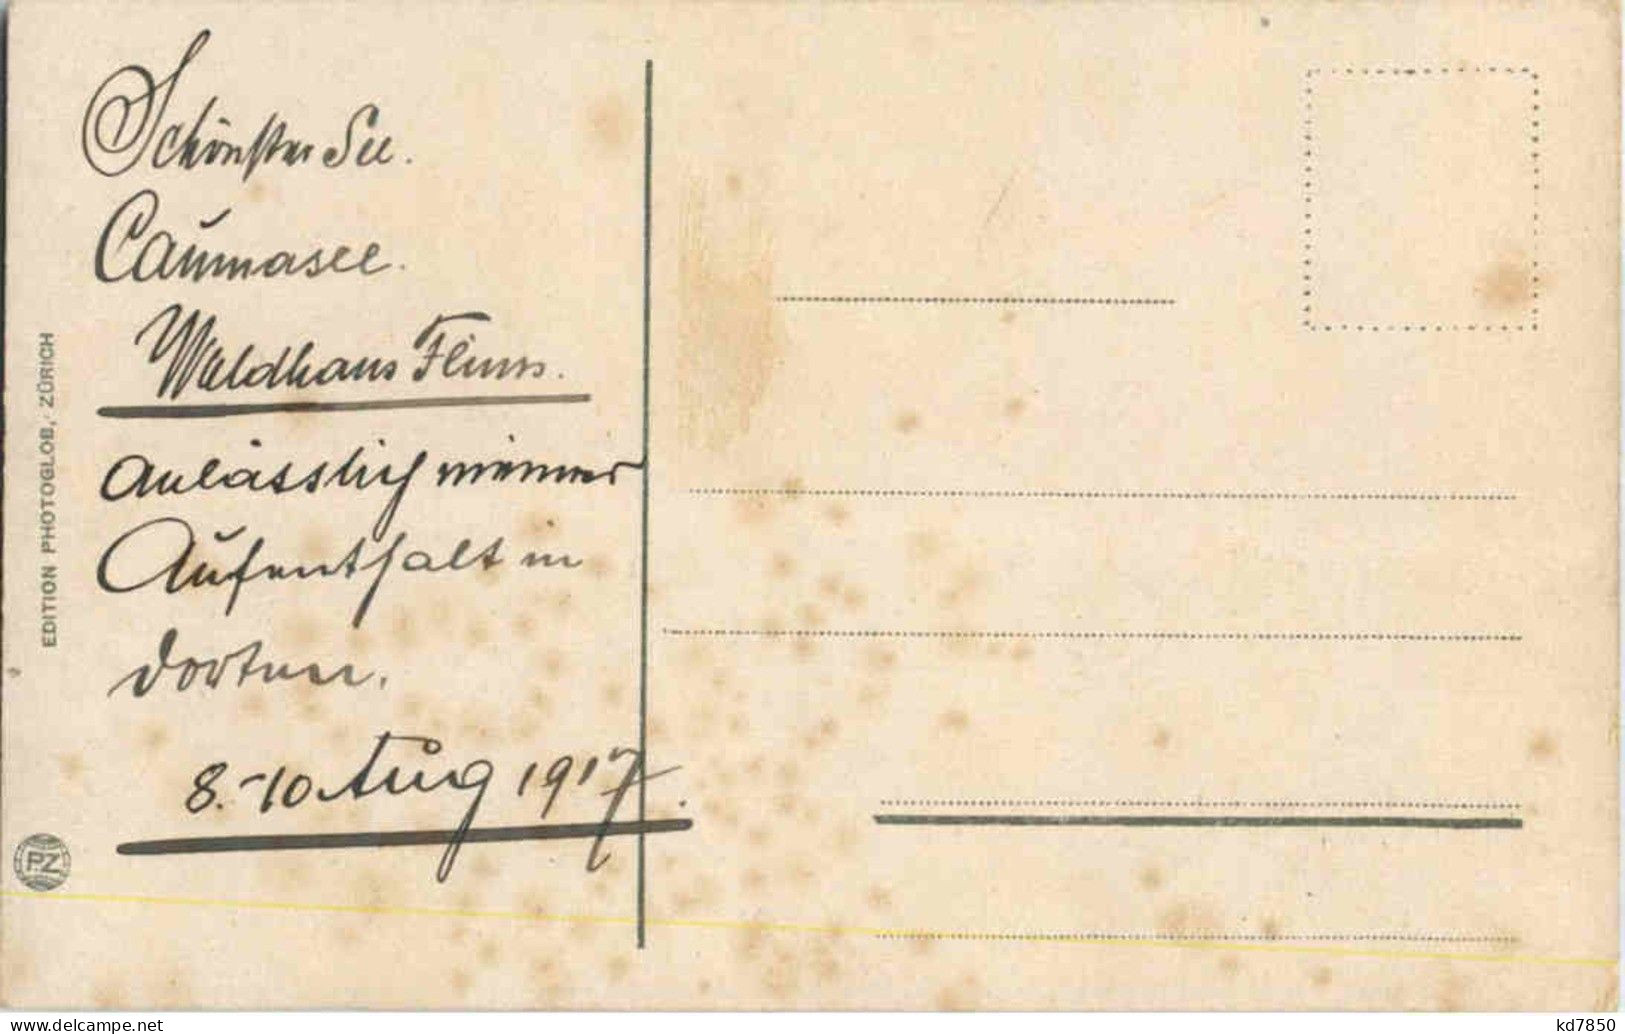 Schönster See.
Caumasee.
Waldhaus Flims.
Anlässlich meiner
Aufenthalt in
dorten.
8.-10 Aug 1917.
EDITION PHOTOGLOB, ZÜRICH
PZ
www.delcampe.net
kd7850